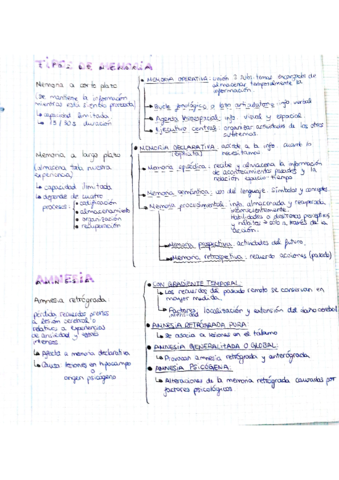 TIPOS DE MEMORIA
Memoria a corto plazo
(Se mantiene la información
mientras está siendo procesada)
↳ capacidad limitada
↳ 15 / 30s duración
• MEMORIA OPERATIVA: unión 3 subsistemas encargado de
almacenar temporalmente la
información.
→ Bucle fonológico o articulatorio info verbal
→ Agenda visoespacial: info. visual y espacial.
→ Ejecutivo central: organizar actividades de los otros
subsistemas.
Memoria a largo plazo
(almacena toda nuestra
experiencia)
↳ capacidad ilimitada
↳ depende de cuatro
procesos: codificación
almacenamiento
organización
recuperación
• MEMORIA DECLARATIVA: accede a la info. cuando lo
necesitamos
→ Memoria episódica: recibe y almacena la información
de acontecimientos pasados y la
relación espacio-tiempo
→ Memoria semántica: uso del lenguaje. Símbolos y conceptos
→ Memoria procedimental: info. almacenada y recuperada
inconscientemente.
Habilidades o destrezas
sólo a través de la
acción.
→ Memoria prospectiva: actividades del futuro.
→ Memoria retrospectiva: recuerdo acciones (pasado)
AMNESIA
Amnesia retrógrada
pérdida recuerdos previos
al lesión cerebral o
relativos a experiencias
de ansiedad y estrés
intensos
↳ Afecta a memoria declarativa
↳ Causa lesiones en hipocampo
o
origen psicógeno
• CON GRADIENTE TEMPORAL:
↳ Los recuerdos del pasado remoto se conservan en
mayor medida.
↳ Factores: localización y extensión del daño cerebral
• AMNESIA RETRÓGRADA PURA
↳ Se asocia a lesiones en el tálamo
• AMNESIA GENERALIZADA O GLOBAL:
↳ Provocan amnesia retrógrada y anterógrada.
• AMNESIA PSICÓGENA:
↳ Alteraciones de la memoria retrógrada causadas por
factores psicológicos